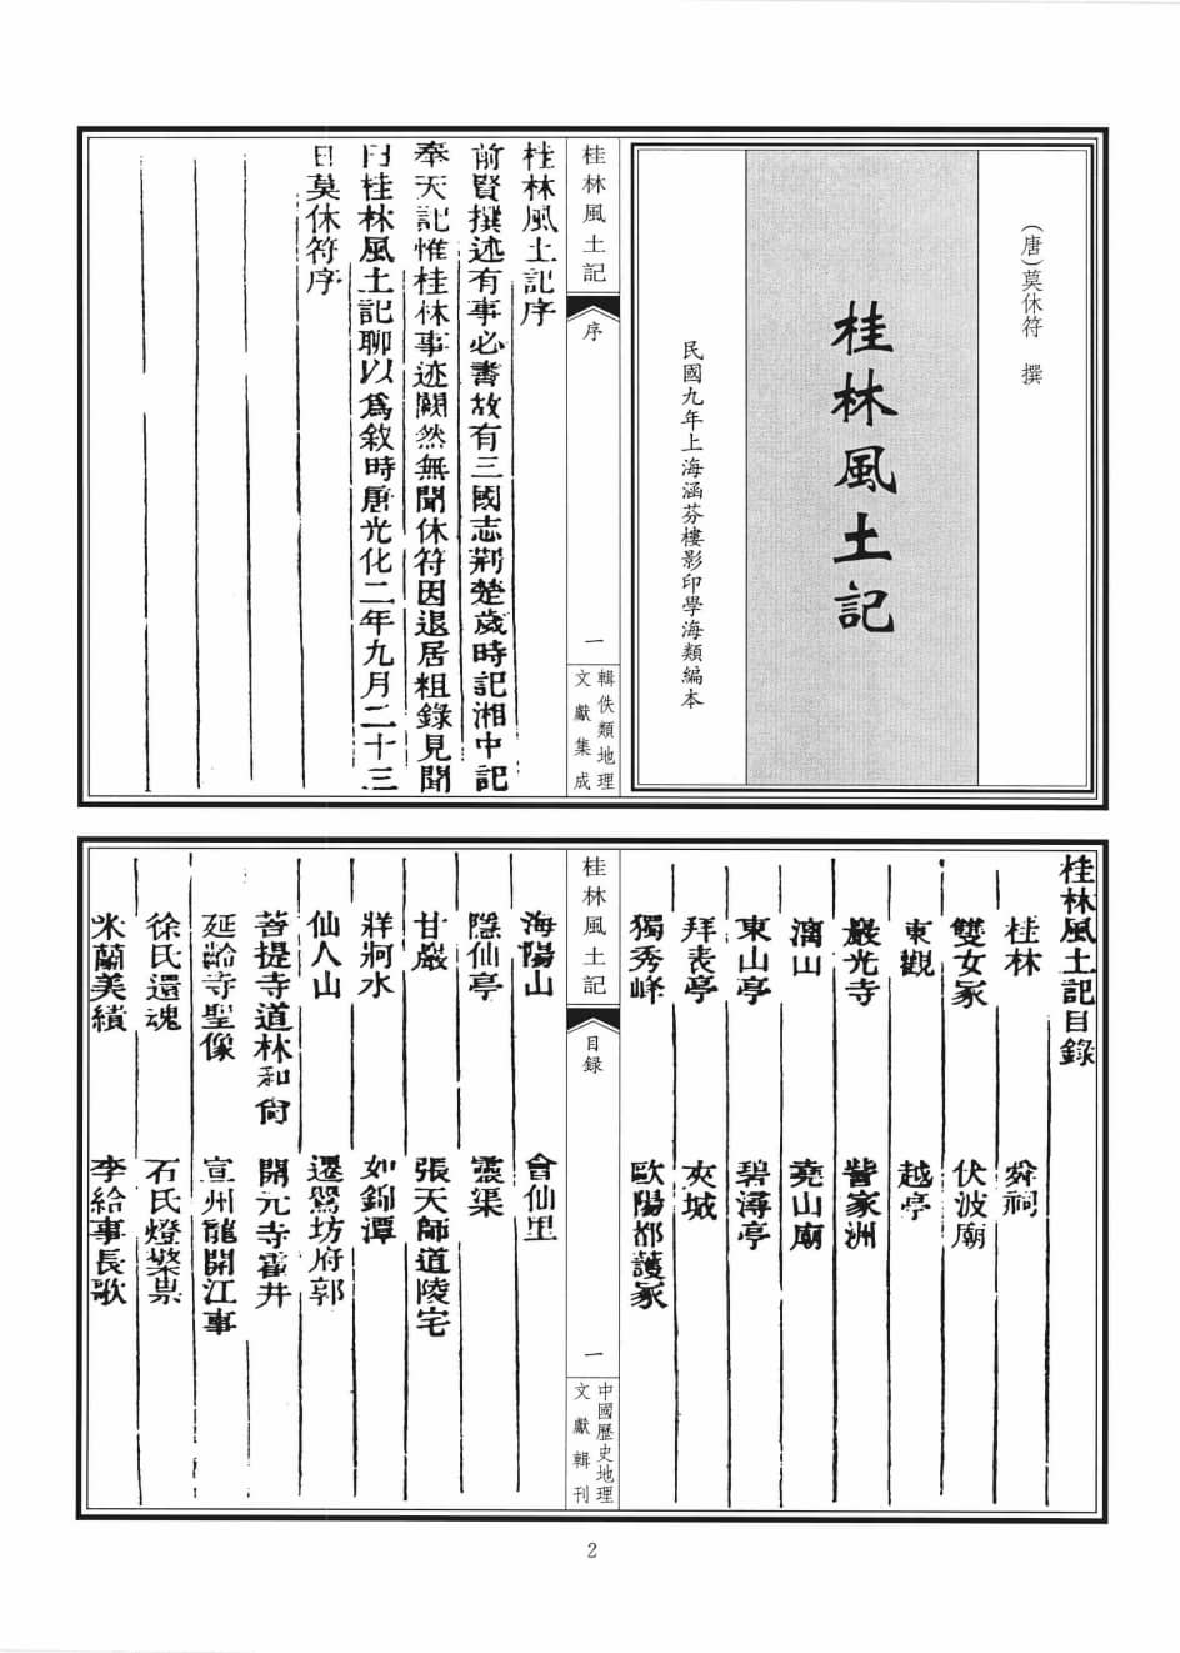 (唐)莫休符 撰
桂林風土記
民國九年上海涵芬樓影印學海類編本
桂林風土記
序
一
輯佚類地理
文獻集成
桂林風土記序
前賢撰述有事必書故有三國志荆楚歲時記湘中記
奉天記惟桂林事迹闕然無聞休符因退居粗錄見聞
曰桂林風土記聊以爲敘時唐光化二年九月二十三
日莫休符序
桂林風土記目錄
桂林 舜祠
雙女冢 伏波廟
東觀 越亭
巖光寺 訾家洲
漓山 堯山廟
東山亭 碧潯亭
拜表亭 夾城
獨秀峰 歐陽都護冢
桂林風土記
目録
一
中國歷史地理
文獻輯刊
海陽山 會仙里
隱仙亭 靈渠
甘巖 張天師道陵宅
牂牁水 如錦潭
仙人山 遷鶯坊府郭
菩提寺道林和尙 開元寺震井
延齡寺聖像 宣州龍開江事
徐氏還魂 石氏燈檠祟
米蘭美績 李給事長歌
2